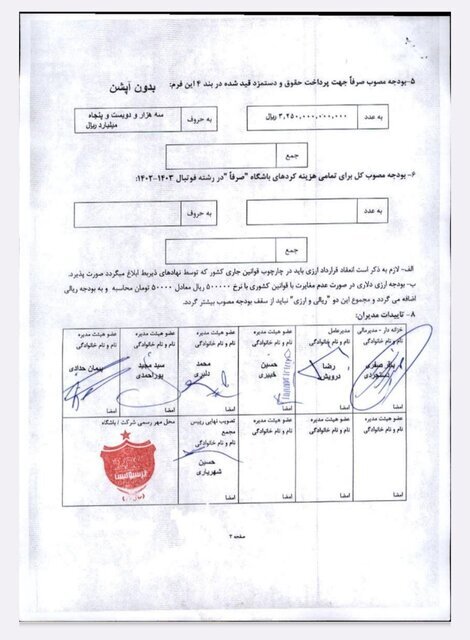 ۵-بودجه مصوب صرفاً جهت پرداخت حقوق و دستمزد قید شده در بند ۴ این فرم: بدون آپشن
به عدد
۳,۲۵۰,۰۰۰,۰۰۰,۰۰۰ ریال
به حروف
سه هزار و دویست و پنجاه
میلیارد ریال
جمع
۶-بودجه مصوب کل برای تمامی هزینه کردهای باشگاه "صرفاً" در رشته فوتبال ۱۴۰۳-۱۴۰۲:
به عدد
به حروف
جمع
الف- لازم به ذکر است انعقاد قرارداد ارزی باید در چارچوب قوانین جاری کشور که توسط نهادهای ذیربط ابلاغ میگردد صورت پذیرد.
ب- بودجه ارزی دلاری در صورت عدم مغایرت با قوانین کشوری با نرخ ۵۰۰۰۰۰ ریال معادل ۵۰۰۰۰ تومان محاسبه و به بودجه ریالی
اضافه می گردد و مجموع این دو "ریالی و ارزی" نباید از سقف بودجه مصوب بیشتر گردد.
۸- تاییدات مدیران:
خزانه دار - مدیرمالی
نام و نام خانوادگی
دستجردی
امضا
مدیرعامل
نام و نام خانوادگی
رضا
درویش
امضا
عضو هیئت مدیره
نام و نام خانوادگی
حسین
خبیری
امضا
عضو هیئت مدیره
نام و نام خانوادگی
محمد
دلیری
امضا
عضو هیئت مدیره
نام و نام خانوادگی
سید مجید
پوراحمدی
امضا
عضو هیئت مدیره
نام و نام خانوادگی
پیمان حدادی
امضا
عضو هیئت مدیره
نام و نام خانوادگی
امضا
عضو هیئت مدیره
نام و نام خانوادگی
امضا
عضو هیئت مدیره
نام و نام خانوادگی
امضا
تصویب نهایی رییس
مجمع
نام و نام خانوادگی
حسین
شهریاری
امضا
محل مهر رسمی شرکت / باشگاه
پرسپولیس
صفحه ۲